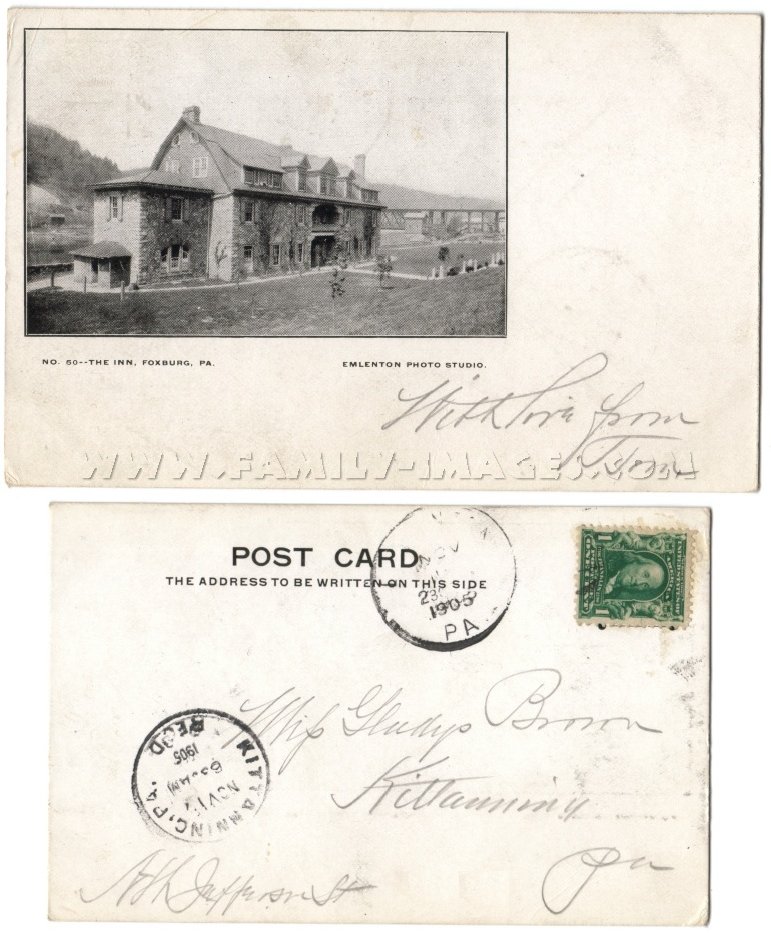 NO. 50--THE INN, FOXBURG, PA. EMLENTON PHOTO STUDIO.
With love from
Tom
WWW.FAMILY-IMAGES.COM
POST CARD
THE ADDRESS TO BE WRITTEN ON THIS SIDE
NOV
1905
PA
1
Miss Gladys Brown
Kittanning
Pa
KITTANNING, PA.
NOV 17
1905
REC'D
Jefferson St